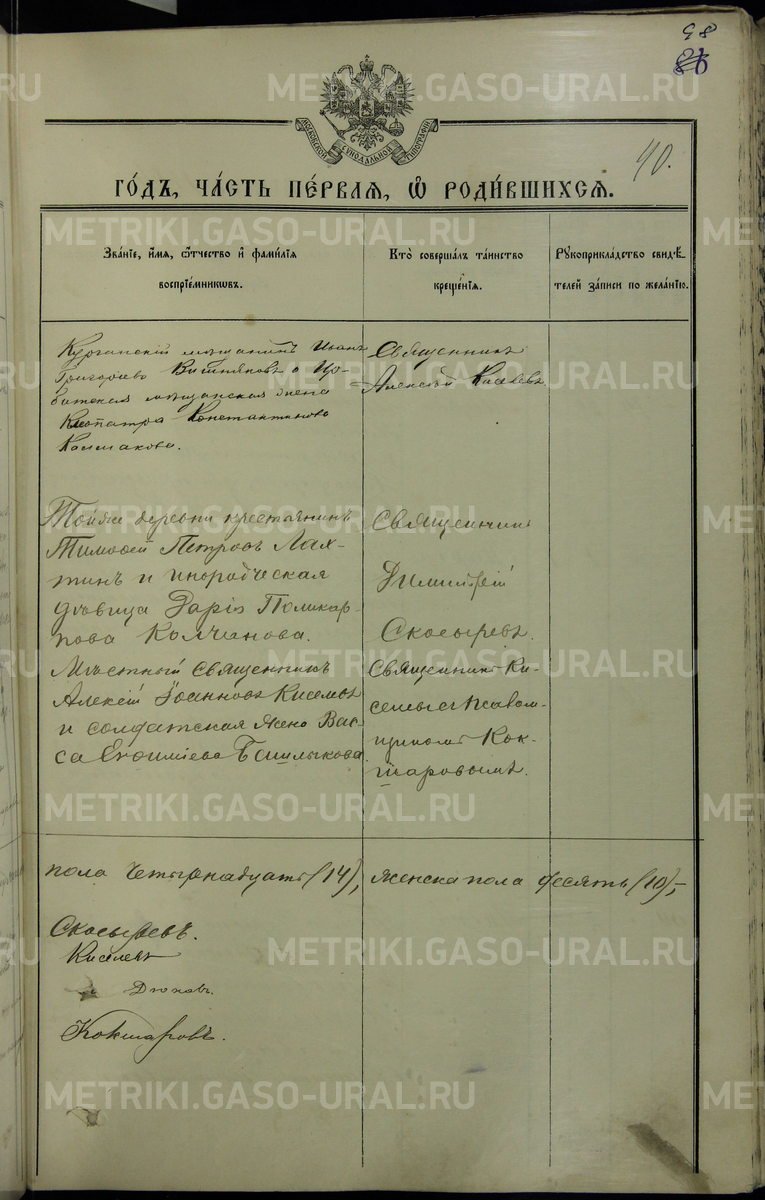 98
86
МОСКОВСКОЙ СѴНОДАЛЬНОЙ ТИПОГРАФІИ
40.
ГО́ДЪ, ЧА́СТЬ ПЕ́РВАЯ, Ѡ҆ РОДИ́ВШИХСЯ.
Зва́нїе, и҆́мя, ѻ҆́тчество и҆ фами́лїя
воспрїе́мниковъ.
Кто̀ соверша́лъ та́инство
креще́нїя.
Рꙋкоприкла́дство свидѣ́-
телей за́писи по жела́нїю.
Курганскій мѣщанинъ Иванъ
Григорьевъ Вишняковъ и Ир-
битская мѣщанская жена
Клеопатра Константинова
Колмакова.
Священникъ
Алексѣй Киселевъ
Тойже деревни крестьянинъ
Тимофей Петровъ Лах-
тинъ и инородческая
дѣвица Дарія Поликар-
пова Колчанова.
Священникъ
Димитрій
Скосыревъ.
Мѣстный Священникъ
Алексій Іоанновъ Киселевъ
и солдатская жена Вас-
са Евфиміева Башлыкова.
Священникъ Ки-
селевъ съ псалом-
щикомъ Кок-
шаровымъ.
пола четырнадцать (14), женска пола десять (10),-
Скосыревъ.
Киселевъ
Дюковъ.
Кокшаровъ.
METRIKI.GASO-URAL.RU